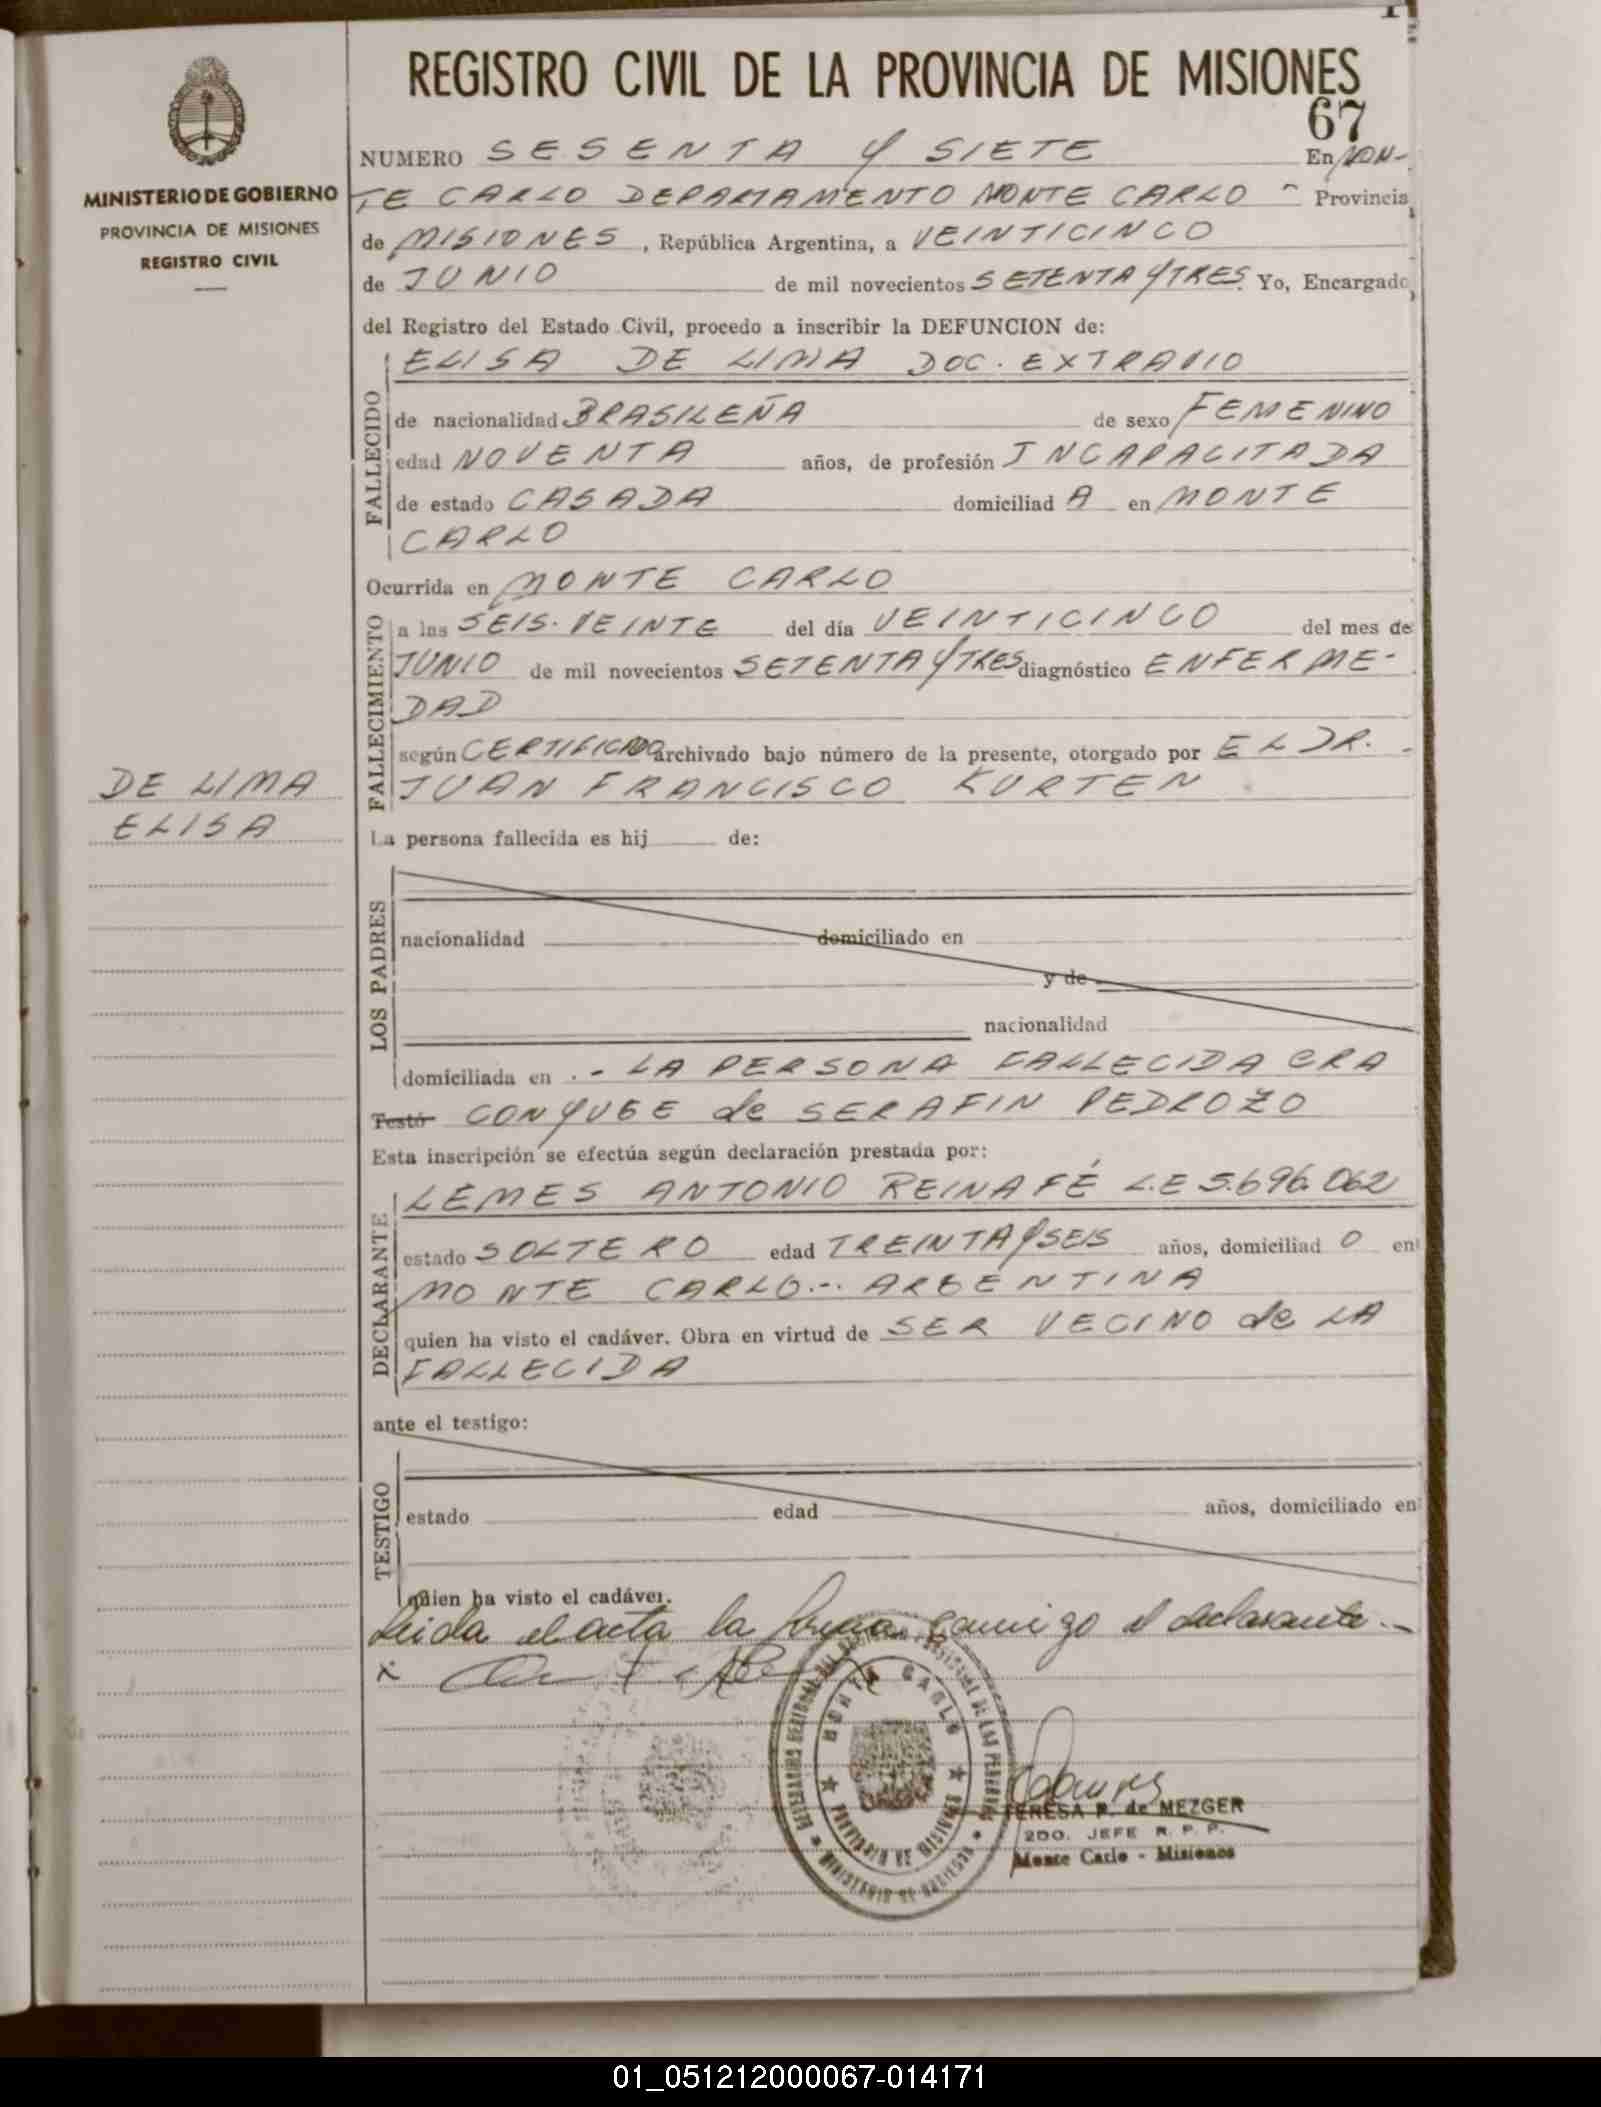 REGISTRO CIVIL DE LA PROVINCIA DE MISIONES
67
MINISTERIO DE GOBIERNO
PROVINCIA DE MISIONES
REGISTRO CIVIL
NUMERO SESENTA Y SIETE En MON-
TE CARLO DEPARTAMENTO MONTE CARLO - Provincia
de MISIONES, República Argentina, a VEINTICINCO
de JUNIO de mil novecientos SETENTA Y TRES. Yo, Encargado
del Registro del Estado Civil, procedo a inscribir la DEFUNCION de:
FALLECIDO
ELISA DE LIMA DOC. EXTRAVIO
de nacionalidad BRASILEÑA de sexo FEMENINO
edad NOVENTA años, de profesión INCAPACITADA
de estado CASADA domiciliad A en MONTE
CARLO
Ocurrida en MONTE CARLO
FALLECIMIENTO
a las SEIS. VEINTE del día VEINTICINCO del mes de
JUNIO de mil novecientos SETENTA Y TRES diagnóstico ENFERME-
DAD
según CERTIFICADO archivado bajo número de la presente, otorgado por EL DR.
JUAN FRANCISCO KURTEN
DE LIMA
ELISA
La persona fallecida es hij de:
LOS PADRES
nacionalidad domiciliado en
y de
nacionalidad
domiciliada en .- LA PERSONA FALLECIDA ERA
Testó CONYUGE de SERAFIN PEDROZO
Esta inscripción se efectúa según declaración prestada por:
DECLARANTE
LEMES ANTONIO REINAFÉ L.E 5.696.062
estado SOLTERO edad TREINTA Y SEIS años, domiciliad O en
MONTE CARLO.-. ARGENTINA
quien ha visto el cadáver. Obra en virtud de SER VECINO de LA
FALLECIDA
ante el testigo:
TESTIGO
estado edad años, domiciliado en
quien ha visto el cadáver.
Leida el acta la firma conmigo el declarante.-
x
MONTE CARLO
PROVINCIA DE MISIONES
MINISTERIO DE GOBIERNO
TERESA P. de MEZGER
2DO. JEFE R. P. P.
Monte Carlo - Misiones
01_051212000067-014171